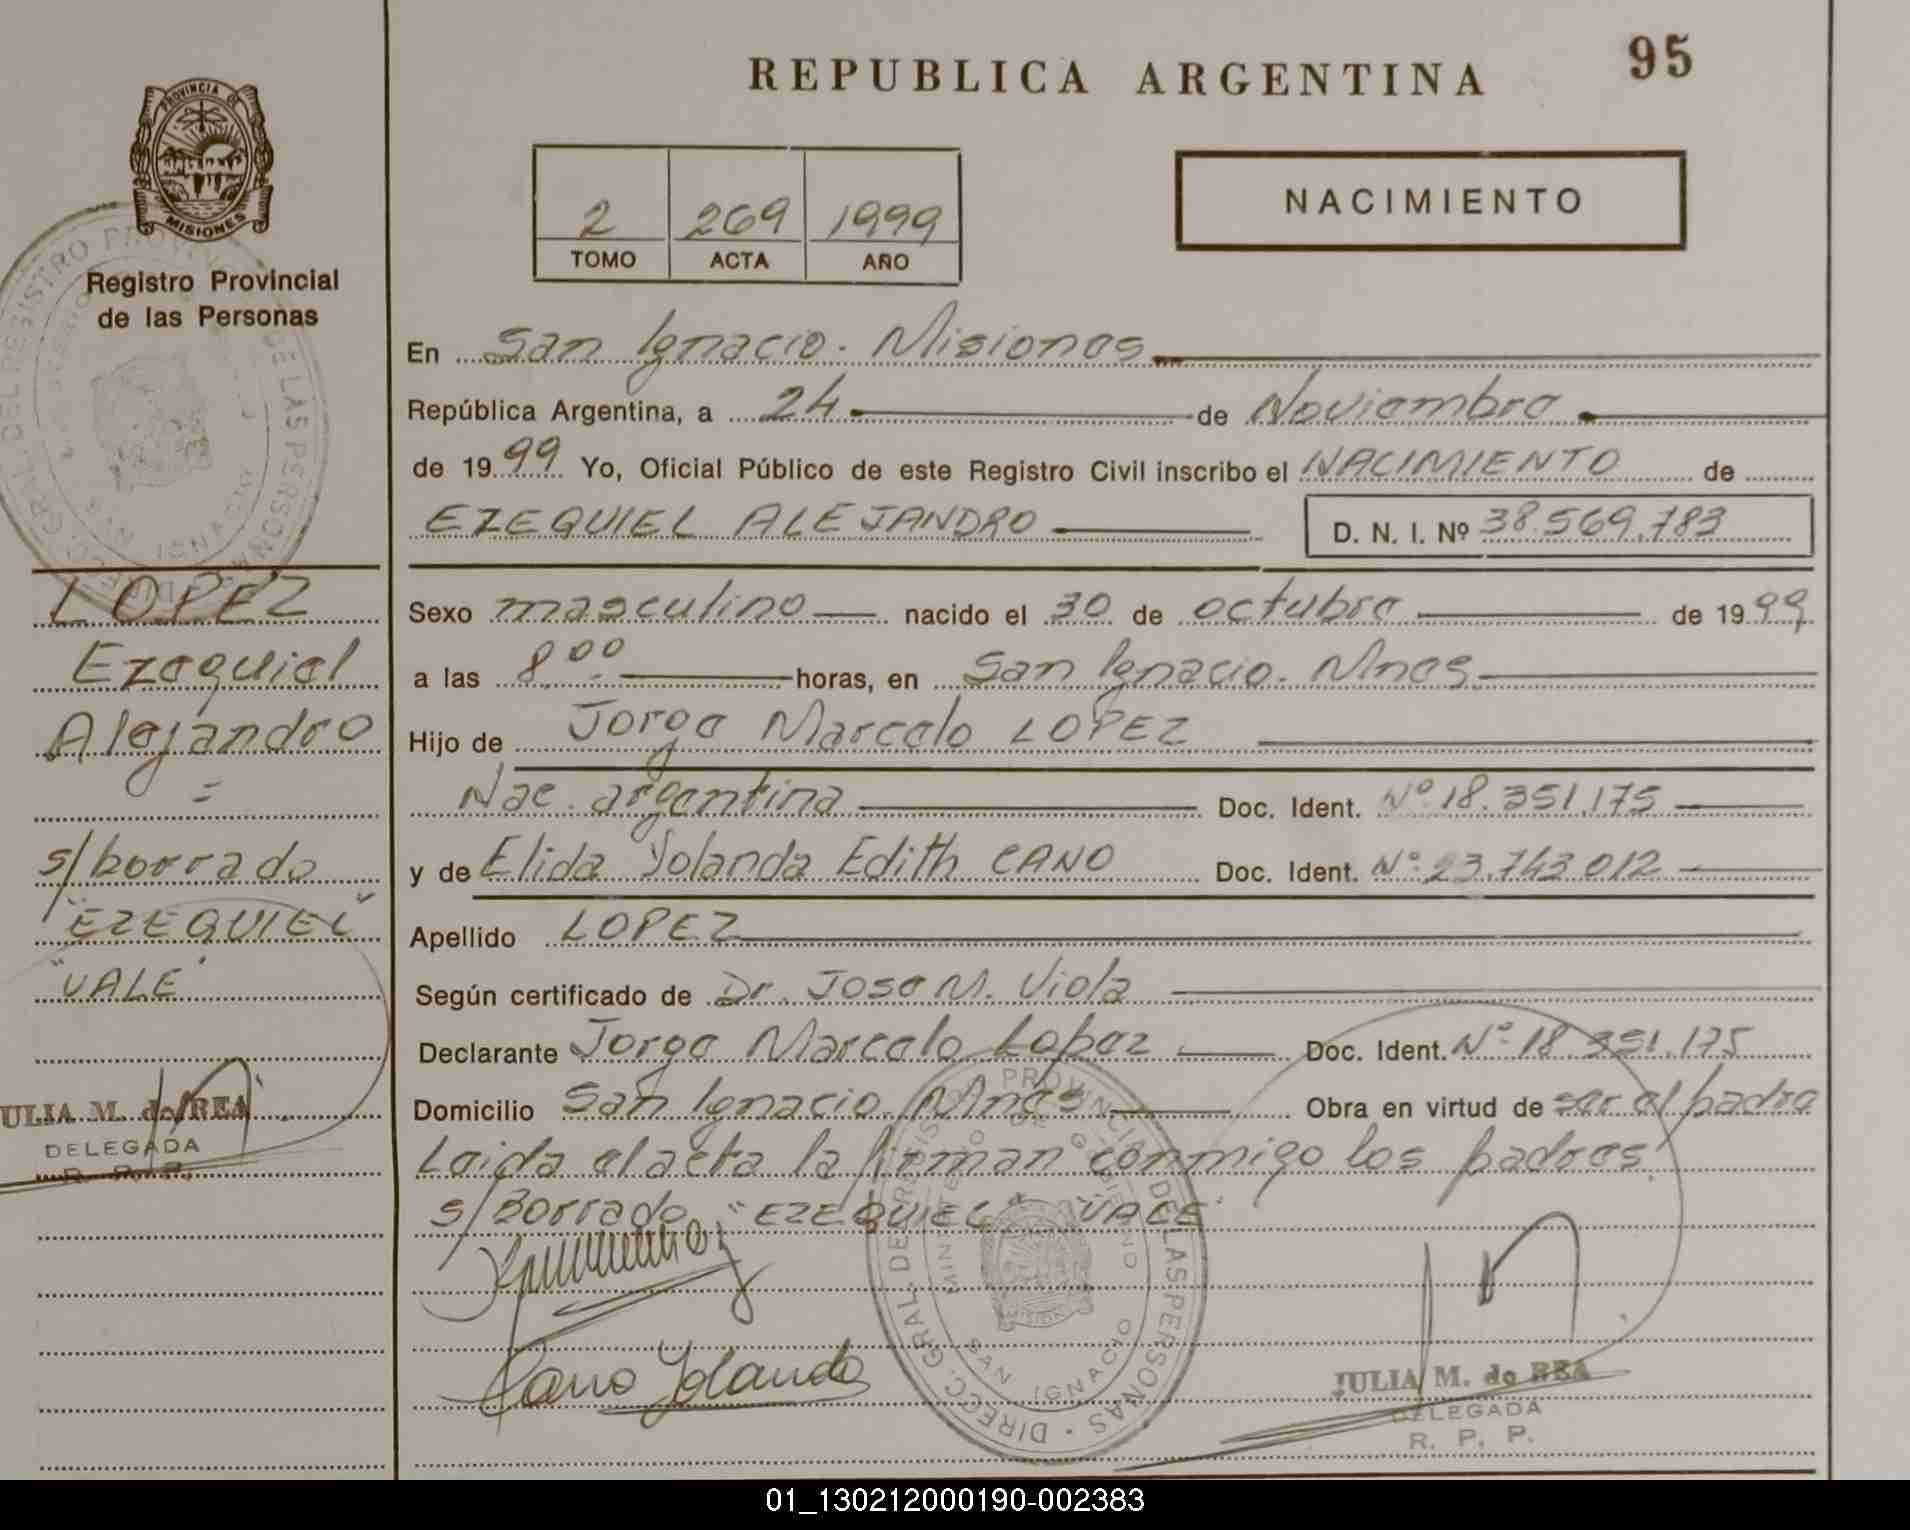 REPUBLICA ARGENTINA
95
PROVINCIA DE
MISIONES
Registro Provincial
de las Personas
2 269 1999
TOMO ACTA AÑO
NACIMIENTO
En San Ignacio. Misiones
República Argentina, a 24 de Noviembre
de 1999 Yo, Oficial Público de este Registro Civil inscribo el NACIMIENTO de
EZEQUIEL ALEJANDRO D. N. I. Nº 38.569.783
Sexo masculino nacido el 30 de octubre de 1999
a las 8.00 horas, en San Ignacio. Mnes
Hijo de Jorge Marcelo LOPEZ
Nac. argentina Doc. Ident. Nº 18.351.175
y de Elida Yolanda Edith CANO Doc. Ident. Nº 23.743.012
Apellido LOPEZ
Según certificado de Dr. Jose M. Viola
Declarante Jorge Marcelo Lopez Doc. Ident. Nº 18.351.175
Domicilio San Ignacio. Mnes Obra en virtud de ser el padre
Leida el acta la firman conmigo los padres.
s/Borrado "EZEQUIEL" "VALE"
Cano Yolanda
JULIA M. de REA
DELEGADA
R. P. P.
DIRECC. GRAL. DE REGISTRO PROVINCIAL DE LAS PERSONAS
MINISTERIO DE GOBIERNO
SAN IGNACIO
LOPEZ
Ezequiel
Alejandro
=
s/borrado
"EZEQUIEL"
"VALE"
ULIA M. de REA
DELEGADA
R. P. P.
01_130212000190-002383